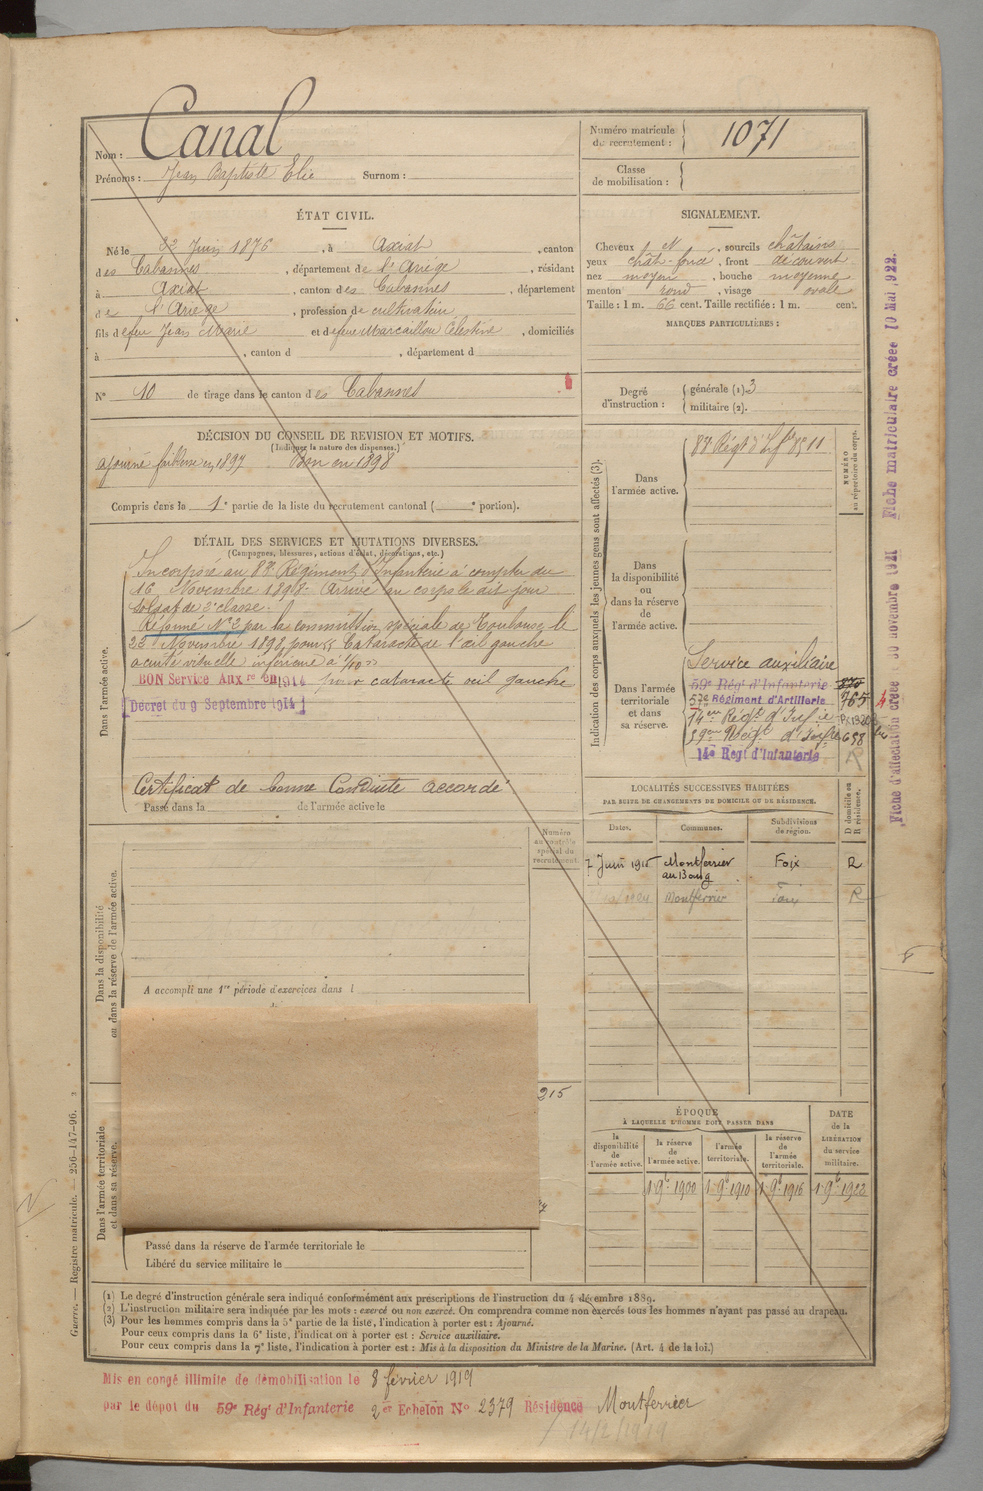 Nom : Canal
Prénoms : Jean Baptiste Elie Surnom :
Numéro matricule du recrutement : 1071
Classe de mobilisation :
ÉTAT CIVIL.
Né le 22 Juin 1876, à Axiat, canton
des Cabannes, département de l'Ariège, résidant
à Axiat, canton des Cabannes, département
de l'Ariège, profession de cultivateur
fils de feu Jean Marie et de feue Marcaillou Célestine, domiciliés
à , canton d , département d
N° 10 de tirage dans le canton des Cabannes
SIGNALEMENT.
Cheveux N, sourcils châtains
yeux chât-foncé, front découvert
nez moyen, bouche moyenne
menton rond, visage ovale
Taille : 1 m. 66 cent. Taille rectifiée : 1 m. cent.
MARQUES PARTICULIÈRES :
Degré d'instruction : générale (1). 3
militaire (2).
DÉCISION DU CONSEIL DE REVISION ET MOTIFS.
(Indiquer la nature des dispenses.)
ajourné faiblesse en 1897 Bon en 1898
Compris dans la 1e partie de la liste du recrutement cantonal ( e portion).
DÉTAIL DES SERVICES ET MUTATIONS DIVERSES.
(Campagnes, blessures, actions d'éclat, décorations, etc.)
Dans l'armée active.
Incorporé au Régiment d'Infanterie à compter du
16 Novembre 1898. Arrivé au corps le dit jour
soldat de 2e classe.
Réformé N°2 par la commission spéciale de Toulouse le
23 Novembre 1898, pour Cataracte de l'œil gauche
acuité visuelle inférieure à 1/10"
BON Service Auxre en 1914 pour cataracte oeil gauche
Décret du 9 Septembre 1914
Certificat de bonne Conduite accordé
Passé dans la de l'armée active le
Indication des corps auxquels les jeunes gens sont affectés (3).
NUMÉRO au répertoire du corps.
Dans l'armée active.
Régt d'Inf 8511
Dans la disponibilité ou dans la réserve de l'armée active.
Dans l'armée territoriale et dans sa réserve.
Service auxiliaire
59e Régt d'Infanterie
57e Régiment d'Artillerie 765
14eme Régt d'Infie
59eme Régt d'Infie 658
14e Régt d'Infanterie R
Fiche d'affectation créée 30 novembre 1921 Fiche matriculaire créée 10 Mai 1922.
LOCALITÉS SUCCESSIVES HABITÉES
PAR SUITE DE CHANGEMENTS DE DOMICILE OU DE RÉSIDENCE.
Dates. Communes. Subdivisions de région. D domicile ou R résidence.
7 Juin 1915 Montferrier au Bourg Foix R
1924 Montferrier Foix R
Dans la disponibilité ou dans la réserve de l'armée active.
Numéro au contrôle spécial du recrutement.
A accompli une 1re période d'exercices dans l
215
Dans l'armée territoriale et dans sa réserve.
Passé dans la réserve de l'armée territoriale le
Libéré du service militaire le
ÉPOQUE
À LAQUELLE L'HOMME DOIT PASSER DANS
la disponibilité de l'armée active. la réserve de l'armée active. l'armée territoriale. la réserve de l'armée territoriale.
DATE de la LIBÉRATION du service militaire.
1 9e 1900 1 9e 1910 1 9e 1916 1 9e 1923
Guerre. — Registre matricule. — 256-147-96. 2
(1) Le degré d'instruction générale sera indiqué conformément aux prescriptions de l'instruction du 4 décembre 1889.
(2) L'instruction militaire sera indiquée par les mots : exercé ou non exercé. On comprendra comme non exercés tous les hommes n'ayant pas passé au drapeau.
(3) Pour les hommes compris dans la 5e partie de la liste, l'indication à porter est : Ajourné.
Pour ceux compris dans la 6e liste, l'indication à porter est : Service auxiliaire.
Pour ceux compris dans la 7e liste, l'indication à porter est : Mis à la disposition du Ministre de la Marine. (Art. 4 de la loi.)
Mis en congé illimité de démobilisation le 8 février 1919
par le dépot du 59e Régt d'Infanterie 2er Echelon N° 2379 Résidence Montferrier
14/2/1919